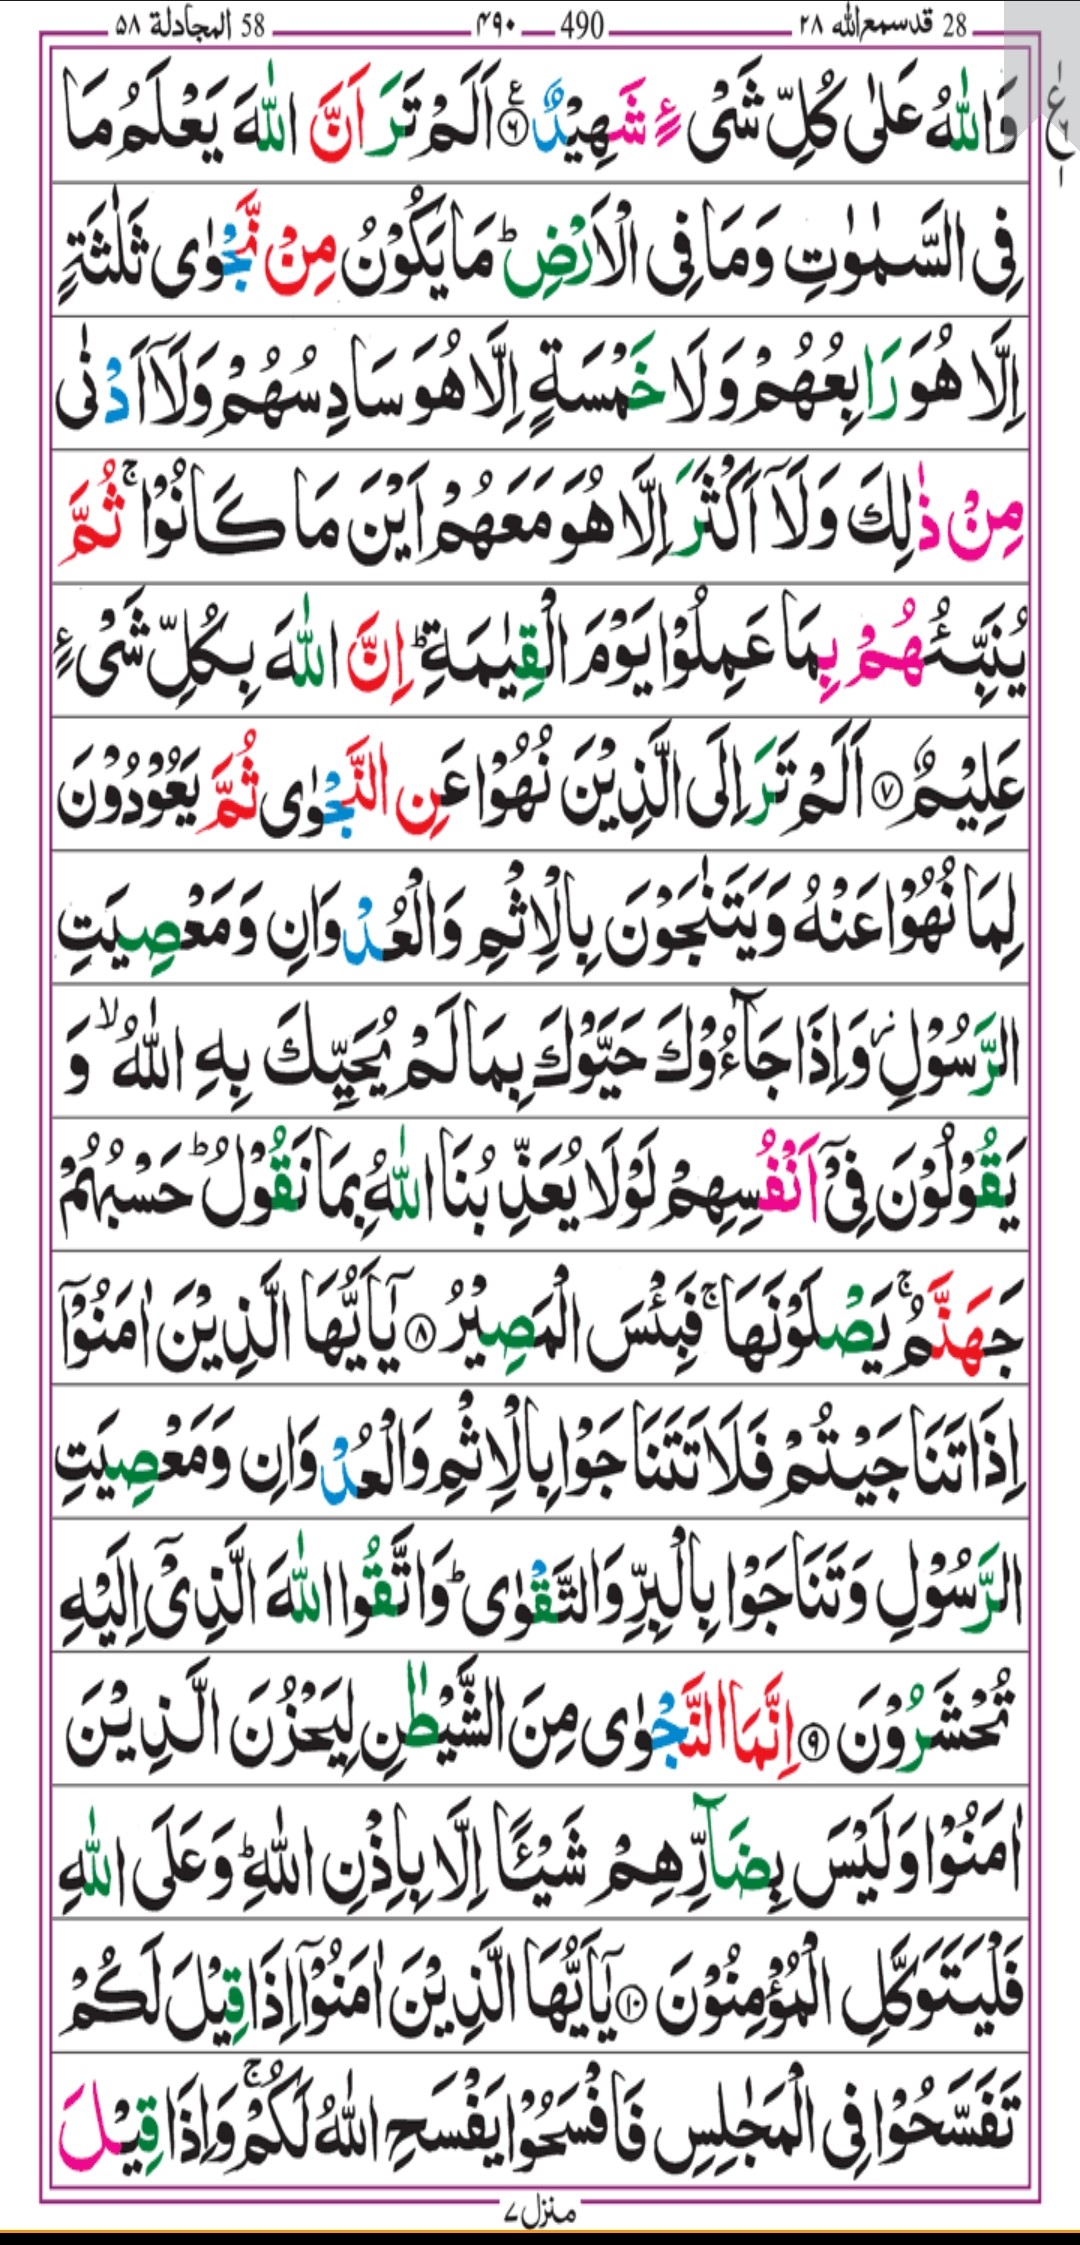 28 قدسمع الله ٢٨ — 490 — ۴۹۰ — 58 المجادلة ۵۸
وَاللّٰهُ عَلٰى كُلِّ شَىْءٍ شَهِيْدٌ ۶ ع اَلَمْ تَرَ اَنَّ اللّٰهَ يَعْلَمُ مَا
فِى السَّمٰوٰتِ وَمَا فِى الْاَرْضِ ؕ مَا يَكُوْنُ مِنْ نَّجْوٰى ثَلٰثَةٍ
اِلَّا هُوَ رَابِعُهُمْ وَلَا خَمْسَةٍ اِلَّا هُوَ سَادِسُهُمْ وَلَاۤ اَدْنٰى
مِنْ ذٰلِكَ وَلَاۤ اَكْثَرَ اِلَّا هُوَ مَعَهُمْ اَيْنَ مَا كَانُوْا ۚ ثُمَّ
يُنَبِّئُهُمْ بِمَا عَمِلُوْا يَوْمَ الْقِيٰمَةِ ؕ اِنَّ اللّٰهَ بِكُلِّ شَىْءٍ
عَلِيْمٌ ۷ اَلَمْ تَرَ اِلَى الَّذِيْنَ نُهُوْا عَنِ النَّجْوٰى ثُمَّ يَعُوْدُوْنَ
لِمَا نُهُوْا عَنْهُ وَيَتَنٰجَوْنَ بِالْاِثْمِ وَالْعُدْوَانِ وَمَعْصِيَتِ
الرَّسُوْلِ ؗ وَاِذَا جَآءُوْكَ حَيَّوْكَ بِمَا لَمْ يُحَيِّكَ بِهِ اللّٰهُ ۙ وَ
يَقُوْلُوْنَ فِىْۤ اَنْفُسِهِمْ لَوْلَا يُعَذِّبُنَا اللّٰهُ بِمَا نَقُوْلُ ؕ حَسْبُهُمْ
جَهَنَّمُ ۚ يَصْلَوْنَهَا ۚ فَبِئْسَ الْمَصِيْرُ ۸ يٰۤاَيُّهَا الَّذِيْنَ اٰمَنُوْۤا
اِذَا تَنَاجَيْتُمْ فَلَا تَتَنَاجَوْا بِالْاِثْمِ وَالْعُدْوَانِ وَمَعْصِيَتِ
الرَّسُوْلِ وَتَنَاجَوْا بِالْبِرِّ وَالتَّقْوٰى ؕ وَاتَّقُوا اللّٰهَ الَّذِىْۤ اِلَيْهِ
تُحْشَرُوْنَ ۹ اِنَّمَا النَّجْوٰى مِنَ الشَّيْطٰنِ لِيَحْزُنَ الَّذِيْنَ
اٰمَنُوْا وَلَيْسَ بِضَآرِّهِمْ شَيْـًٔا اِلَّا بِاِذْنِ اللّٰهِ ؕ وَعَلَى اللّٰهِ
فَلْيَتَوَكَّلِ الْمُؤْمِنُوْنَ ۱۰ يٰۤاَيُّهَا الَّذِيْنَ اٰمَنُوْۤا اِذَا قِيْلَ لَكُمْ
تَفَسَّحُوْا فِى الْمَجٰلِسِ فَافْسَحُوْا يَفْسَحِ اللّٰهُ لَكُمْ ۚ وَاِذَا قِيْلَ
منزل ۷